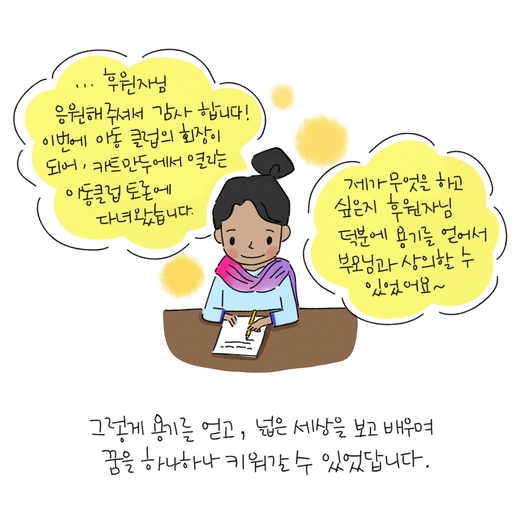 ... 후원자님
응원해주셔서 감사 합니다!
이번에 아동 클럽의 회장이
되어, 카트만두에서 열리는
아동클럽 토론에
다녀왔습니다.
제가 무엇을 하고
싶은지 후원자님
덕분에 용기를 얻어서
부모님과 상의할 수
있었어요~
그렇게 용기를 얻고, 넓은 세상을 보고 배우며
꿈을 하나하나 키워갈 수 있었답니다.